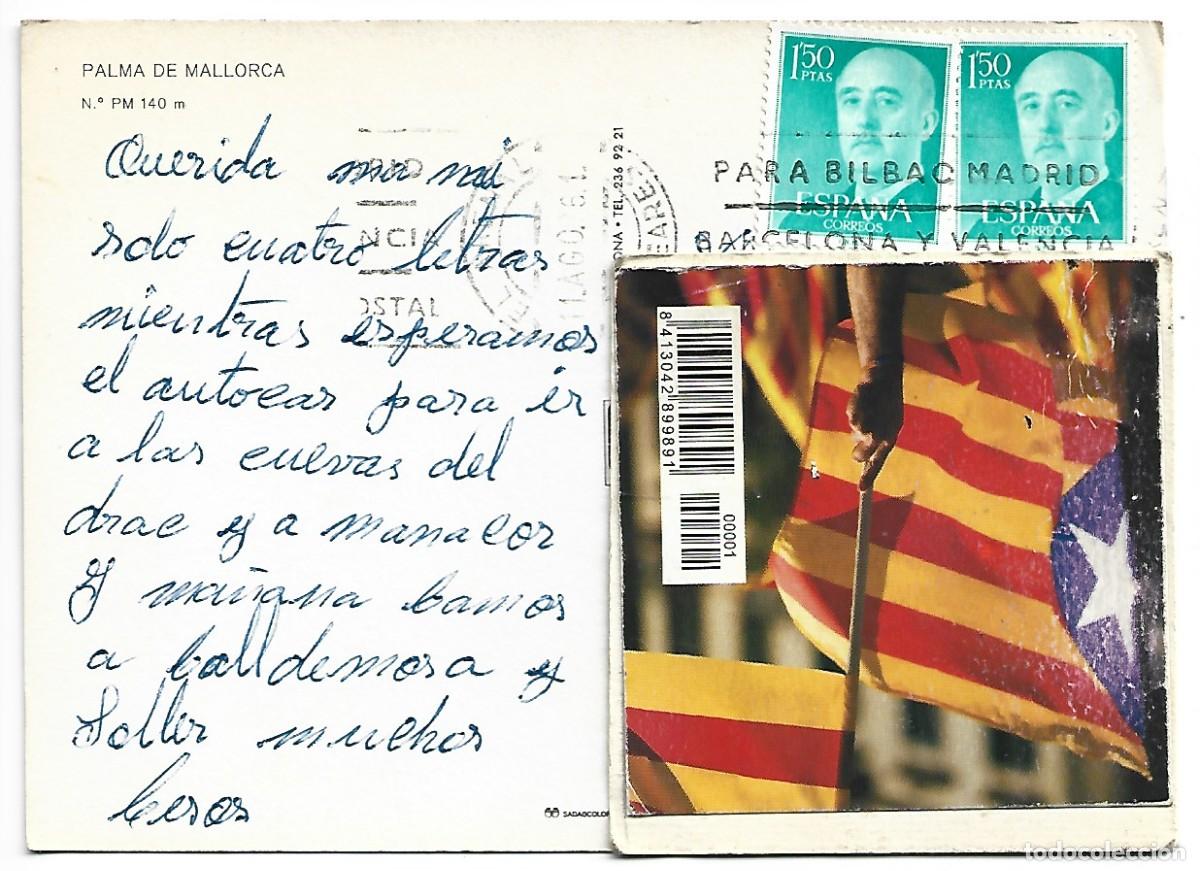 PALMA DE MALLORCA
N.º PM 140 m
Querida mami
solo cuatro letras
mientras esperamos
el autocar para ir
a las cuevas del
drac y a manacor
y mañana bamos
a balldemosa y
Soller muchos
besos
SADAGCOLOR
TEL. 236 92 21
1'50 PTAS
ESPAÑA
CORREOS
1'50 PTAS
ESPAÑA
CORREOS
PARA BILBAO MADRID
BARCELONA Y VALENCIA
8 413042 899891
00001
todocoleccion